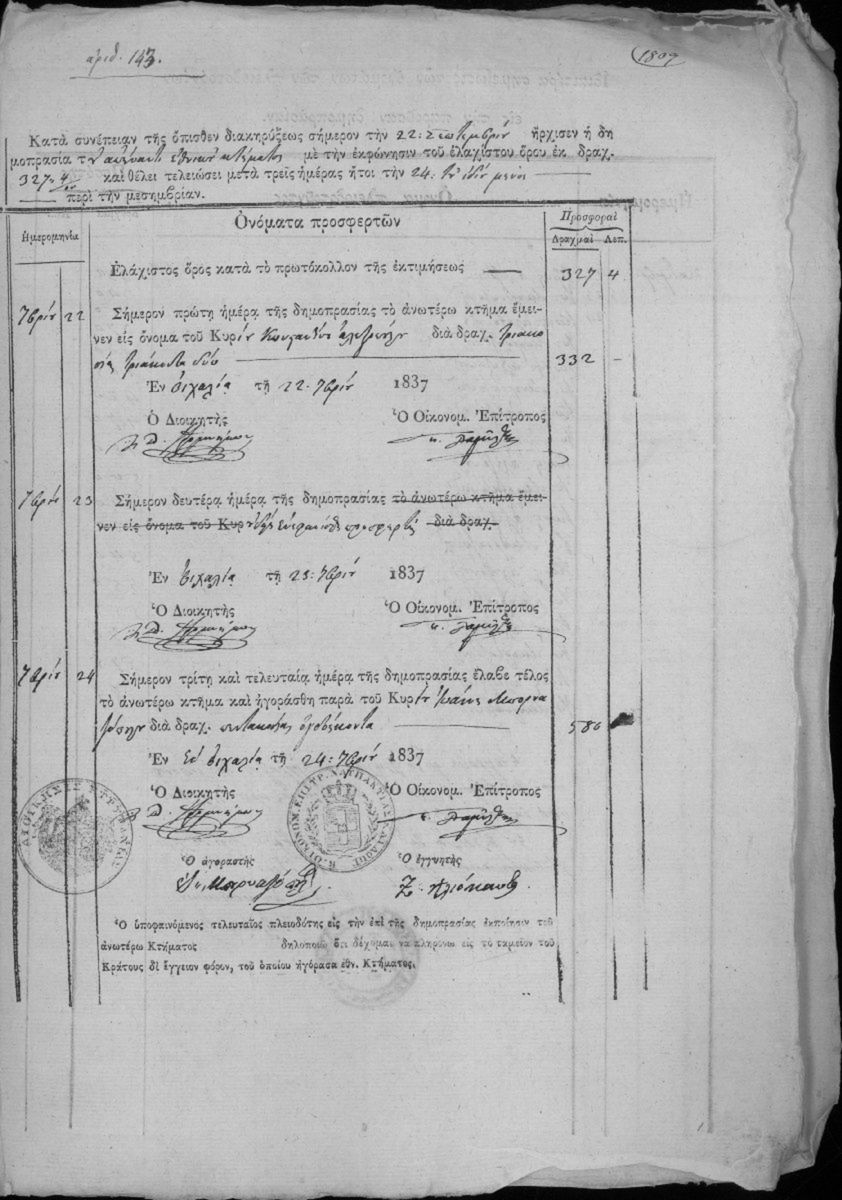 ἀριθ. 143.
1809
Κατὰ συνέπειαν τῆς ὄπισθεν διακηρύξεως σήμερον τὴν 22: Σεπτεμβρίȣ ἤρχισεν ἡ δη
μοπρασία τȣ ἀπέναντι ἐθνικȣ κτήματος μὲ τὴν ἐκφώνησιν τοῦ ἐλαχίστου ὅρου ἐκ δραχ.
327. 4 καὶ θέλει τελειώσει μετὰ τρεῖς ἡμέρας ἤτοι τὴν 24: τȣ ἰδίȣ μηνὸς
περὶ τὴν μεσημβρίαν.
Ἡμερομηνία
Ὀνόματα προσφερτῶν
Προσφοραὶ
Δραχμαὶ Λεπ.
Ἐλάχιστος ὅρος κατὰ τὸ πρωτόκολλον τῆς ἐκτιμήσεως 327 4
7βρίȣ 22 Σήμερον πρώτη ἡμέρα τῆς δημοπρασίας τὸ ἀνωτέρω κτῆμα ἔμει-
νεν εἰς ὄνομα τοῦ Κυρίȣ διὰ δραχ. τριακο
σίας τριάκοντα δύο 332 –
Ἐν τῇ 22: 7βρίȣ 1837
Ὁ Διοικητὴς Ὁ Οἰκονομ. Ἐπίτροπος
7βρίȣ 23 Σήμερον δευτέρα ἡμέρα τῆς δημοπρασίας τὸ ἀνωτέρω κτῆμα ἔμει-
νεν εἰς ὄνομα τοῦ Κυρ διὰ δραχ.
Ἐν τῇ 23: 7βρίȣ 1837
Ὁ Διοικητὴς Ὁ Οἰκονομ. Ἐπίτροπος
7βρίȣ 24 Σήμερον τρίτη καὶ τελευταία ἡμέρα τῆς δημοπρασίας ἔλαβε τέλος
τὸ ἀνωτέρω κτῆμα καὶ ἠγοράσθη παρὰ τοῦ Κυρίȣ
διὰ δραχ. πεντακοσίας ὀγδοήκοντα 580
Ἐν τῇ 24: 7βρίȣ 1837
Ὁ Διοικητὴς Ὁ Οἰκονομ. Ἐπίτροπος
Ὁ ἀγοραστὴς Ὁ ἐγγυητὴς
Ὁ ὑποφαινόμενος τελευταῖος πλειοδότης εἰς τὴν ἐπὶ τῆς δημοπρασίας ἐκποίησιν τοῦ
ἀνωτέρω Κτήματος δηλοποιῶ ὅτι δέχομαι νὰ πληρόνω εἰς τὸ ταμεῖον τοῦ
Κράτους δι' ἔγγειον φόρον, τοῦ ὁποίου ἠγόρασα ἐθν. Κτήματος.